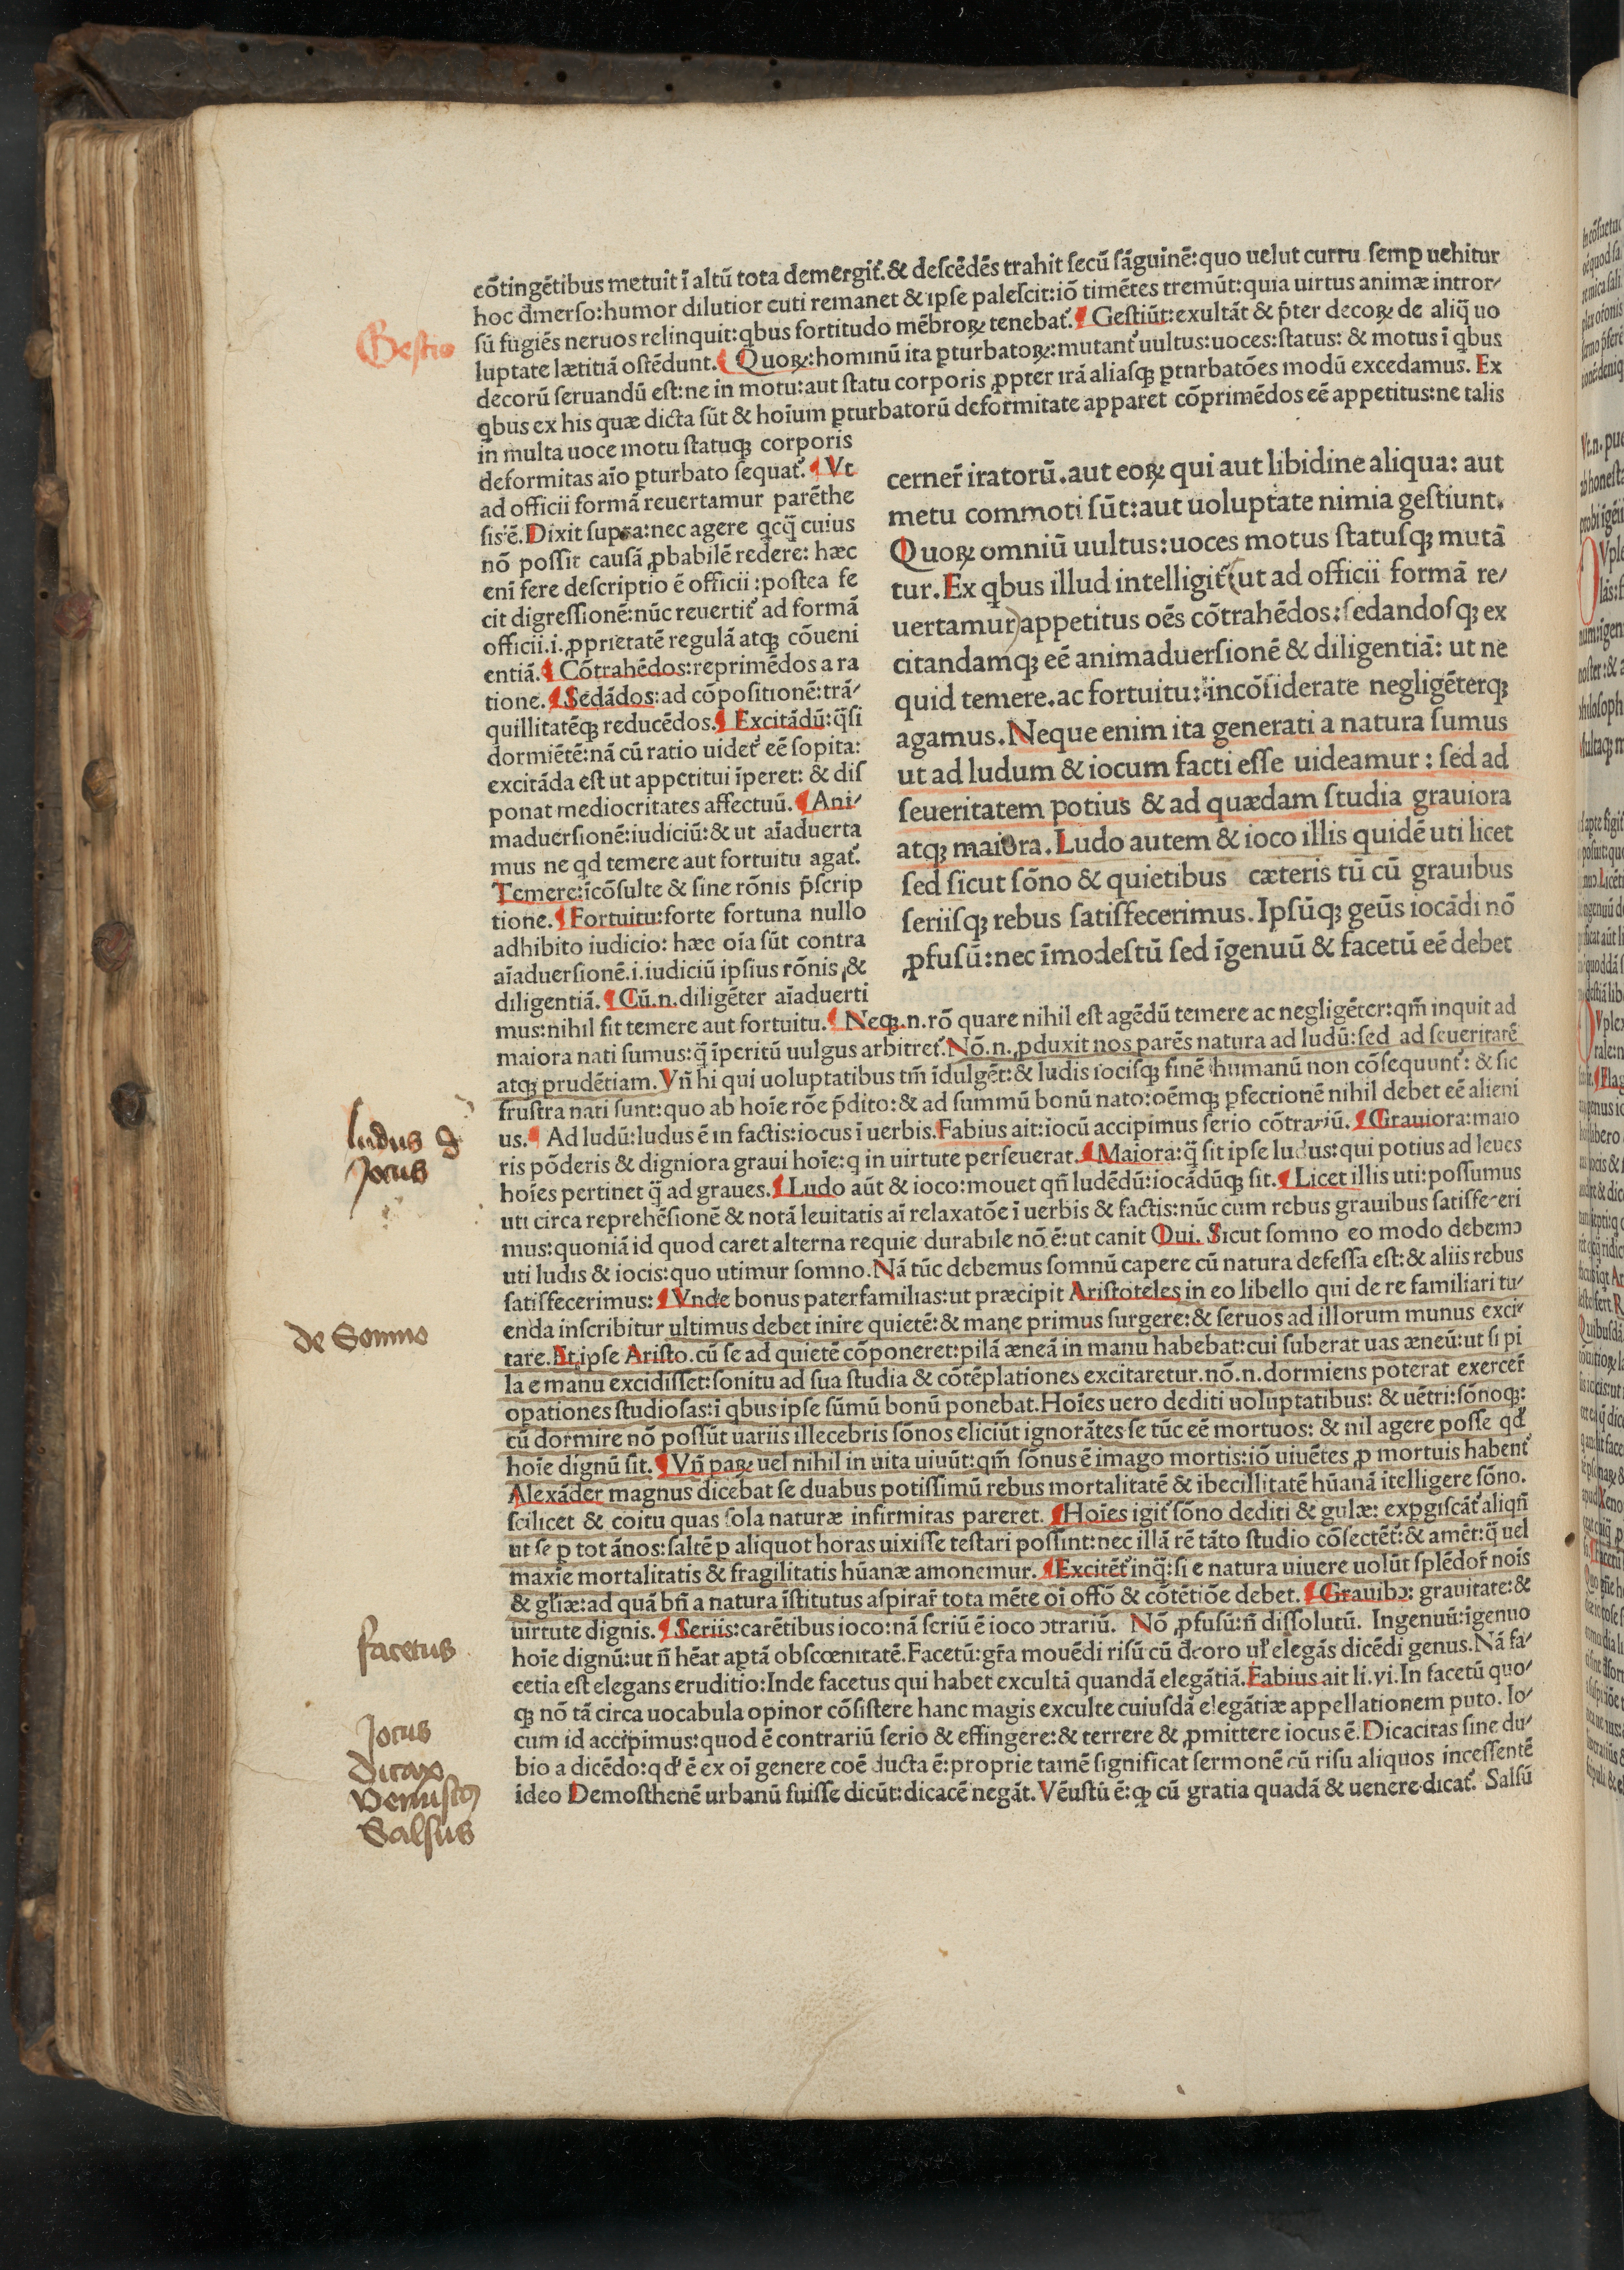 cõtingẽtibus metuit ĩ altũ tota demergit᷑.& deſcẽdẽs trahit ſecũ ſãguinẽ:quo uelut curru ſemꝑ uehitur
hoc d̃merſo:humor dilutior cuti remanet & ipſe paleſcit:iõ timẽtes tremũt:quia uirtus animæ intror⸗
ſũ fugiẽs neruos relinquit:qbus fortitudo mẽbroꝝ tenebat᷑.¶ Geſtiũt:exultãt & p̃ter decoꝝ de aliq̃ uo
luptate lætitiã oſtẽdunt.¶ Quoꝝ:hominũ ita ꝑturbatoꝝ:mutant᷑ uultus:uoces:ſtatus: & motus ĩ qbus
decorũ ſeruandũ eſt:ne in motu:aut ſtatu corporis ꝓpter irã aliaſqꝫ ꝑtnrbatões modũ excedamus. Ex
qbus ex his quæ dicta ſũt & hoĩum ꝑturbatorũ deformitate apparet cõprimẽdos eẽ appetitus:ne talis
in multa uoce motu ſtatuqꝫ corporis
deformitas aĩo ꝑturbato ſequat᷑.¶ Vt
ad officii formã reuertamur parẽthe
ſis ẽ. Dixit ſupra:nec agere qcq̃ cuius
nõ poſſit cauſã ꝓbabilẽ redere: hæc
eni fere deſcriptio ẽ officii :poſtea fe
cit digreſſionẽ:nũc reuertit᷑ ad formã
officii.i.ꝓprietatẽ regulã atqꝫ cõueni
entiã.¶ Cõtrahẽdos:reprimẽdos a ra
tione.¶ Sedãdos:ad cõpoſitionẽ:trã⸗
quillitatẽqꝫ reducẽdos.¶ Excitãdũ:q̃ſi
dormiẽtẽ:nã cũ ratio uidet᷑ eẽ ſopita:
excitãda eſt ut appetitui ĩperet: & diſ
ponat mediocritates affectuũ.¶ Ani⸗
maduerſionẽ:iudiciũ:& ut aĩaduerta
mus ne qd temere aut fortuitu agat᷑.
Temere:ĩcõſulte & ſine rõnis p̃ſcrip
tione.¶ Fortuitu:forte fortuna nullo
adhibito iudicio: hæc oĩa ſũt contra
aĩaduerſionẽ.i.iudiciũ ipſius rõnis ,&
diligentiã.¶ Cũ.n.diligẽter aĩaduerti
cerner̃ iratorũ.aut eoꝝ qui aut libidine aliqua: aut
metu commoti ſũt:aut uoluptate nimia geſtiunt.
Quoꝝ omniũ uultus:uoces motus ſtatuſqꝫ mutã
tur.Ex qbus illud intelligit᷑(ut ad officii formã re⸗
uertamur)appetitus oẽs cõtrahẽdos:ſedandoſqꝫ ex
citandamqꝫ eẽ animaduerſionẽ & diligentiã: ut ne
quid temere.ac fortuitu:incõſiderate negligẽterqꝫ
agamus.Neque enim ita generati a natura ſumus
ut ad ludum & iocum facti eſſe uideamur : ſed ad
ſeueritatem potius & ad quædam ſtudia grauiora
atqꝫ maiora.Ludo autem & ioco illis quidẽ uti licet
ſed ſicut ſõno & quietibus cæteris tũ cũ grauibus
ſeriiſqꝫ rebus ſatiſfecerimus.Ipſũqꝫ geũs iocãdi nõ
ꝓfuſũ:nec ĩmodeſtũ ſed ĩgenuũ & facetũ eẽ debet
mus:nihil fit temere aut fortuitu.¶ Neqꝫ.n.rõ quare nihil eſt agẽdũ temere ac negligẽter:qm̃ inquit ad
maiora nati ſumus:q̃ ĩperitũ uulgus arbitret᷑.Nõ.n.ꝓduxit nos parẽs natura ad ludũ:ſed ad ſeueritatẽ
atqꝫ prudẽtiam.Vñ hi qui uoluptatibus tm̃ ĩdulgẽt:& ludis iociſqꝫ finẽ humanũ non cõſequunt᷑: & ſic
fruſtra nati ſunt:quo ab hoĩe rõe p̃dito:& ad ſummũ bonũ nato:oẽmqꝫ ꝑfectionẽ nihil debet eẽ alieni
us.¶ Ad ludũ:ludus ẽ in factis:iocus ĩ uerbis.Fabius ait:iocũ accipimus ſerio cõtrariũ.¶ Grauiora:maio
ris põderis & digniora graui hoĩe:q in uirtute perſeuerat.¶ Maiora:q̃ ſit ipſe ludus:qui potius ad leues
hoĩes pertinet q̃ ad graues.¶ Ludo aũt & ioco:mouet qñ ludẽdũ:iocãdũqꝫ ſit.¶ Licet illis uti:poſſumus
uti circa reprehẽſionẽ & notã leuitatis aĩ relaxatõe ĩ uerbis & factis:nũc cum rebus grauibus ſatiſfeceri
mus:quoniã id quod caret alterna requie durabile nõ ẽ:ut canit Oui. Sicut ſomno eo modo debemꝰ
uti ludis & iocis:quo utimur ſomno.Nã tũc debemus ſomnũ capere cũ natura defeſſa eſt:& aliis rebus
ſatiſfecerimus:¶ Vnde bonus paterfamilias:ut præcipit Ariſtoteles in eo libello qui de re familiari tu⸗
enda inſcribitur ultimus debet inire quietẽ:& mane primus ſurgere:& ſeruos ad illorum munus exci⸗
tare.At ipſe Ariſto.cũ ſe ad quietẽ cõponeret:pilã æneã in manu habebat:cui ſuberat uas æneũ:ut ſi pi
la e manu excidiſſet:ſonitu ad ſua ſtudia & cõtẽplationes excitaretur.nõ.n.dormiens poterat exercer̃
oꝑationes ſtudioſas:ĩ qbus ipſe ſũmũ bonũ ponebat.Hoĩes uero dediti uoluptatibus: & uẽtri:ſõnoqꝫ:
cũ dormire nõ poſſũt uariis illecebris ſõnos eliciũt ignorãtes ſe tũc eẽ mortuos: & nil agere poſſe qd̃
hoĩe dignũ ſit.¶ Vñ paꝝ uel nihil in uita uiuũt:qm̃ ſõnus ẽ imago mortis:iõ uiuẽtes ꝓ mortuis habent᷑
Alexãder magnus dicebat ſe duabus potiſſimũ rebus mortalitatẽ & ibecillitatẽ hũanã ĩtelligere ſõno.
ſcilicet & coitu quas ſola naturæ infirmitas pareret. ¶Hoĩes igit᷑ ſõno dediti & gulæ: exꝑgiſcãt᷑ aliqñ
ut ſe ꝑ tot ãnos:ſaltẽ ꝑ aliquot horas uixiſſe teſtari poſſint:nec illã rẽ tãto ſtudio cõſectẽt᷑:& amẽt:q̃ uel
maxĩe mortalitatis & fragilitatis hũanæ amonemur. ¶Excitẽt᷑ inq̃:ſi e natura uiuere uolũt ſplẽdor̃ noĩs
& gl̃iæ:ad quã bñ a natura ĩſtitutus aſpirar̃ tota mẽte oĩ offõ & cõtẽtiõe debet.¶ Grauibꝰ: grauitate:&
uirtute dignis.¶ Seriis:carẽtibus ioco:nã ſeriũ ẽ ioco ↄtrariũ. Nõ ꝓfuſũ:ñ diſſolutũ. Ingenuũ:igenuo
hoĩe dignũ:ut ñ hẽat aꝑtã obſcœnitatẽ.Facetũ:gr̃a mouẽdi riſũ cũ d̃coro ul̃ elegãs dicẽdi genus.Nã fa⸗
cetia eſt elegans eruditio:Inde facetus qui habet excultã quandã elegãtiã.Fabius ait li.vi.In facetũ quo⸗
qꝫ nõ tã circa uocabula opinor cõſiſtere hanc magis exculte cuiuſdã elegãtiæ appellationem puto. Io⸗
cum id accipimus:quod ẽ contrariũ ſerio & effingere:& terrere & ꝓmittere iocus ẽ.Dicacitas ſine du⸗
bio a dicẽdo:qd̃ ẽ ex oĩ genere coẽ ducta ẽ:proprie tamẽ ſignificat ſermonẽ cũ riſu aliquos inceſſentẽ
ideo Demoſthenẽ urbanũ fuiſſe dicũt:dicacẽ negãt.Vẽuſtũ ẽ:ꝙ cũ gratia quadã & uenere dicat᷑. Salſũ
Geſtio
ludus &
Jocus
de Somno
facetus
Jocus
Dicax
Venuſtꝰ
Salſus